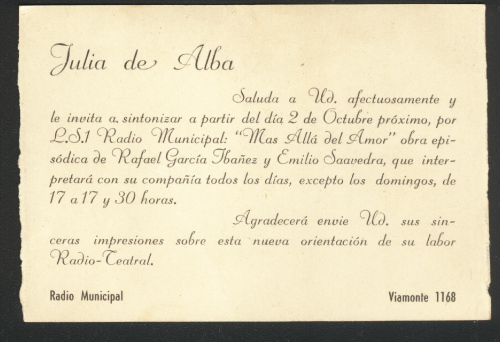 Julia de Alba
Saluda a Ud. afectuosamente y
le invita a sintonizar a partir del día 2 de Octubre próximo, por
L.S.1 Radio Municipal: "Mas Allá del Amor" obra epi-
sódica de Rafael García Ibañez y Emilio Saavedra, que inter-
pretará con su compañía todos los días, excepto los domingos, de
17 a 17 y 30 horas.
Agradecerá envie Ud. sus sin-
ceras impresiones sobre esta nueva orientación de su labor
Radio-Teatral.
Radio Municipal
Viamonte 1168